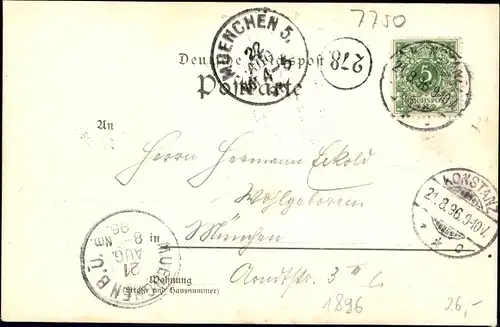 7750
MUENCHEN 5.
22
AUG
278
Deutsche Reichspost
Postkarte
5
REICHSPOST
An
Herrn Hermann Eckold
Wohlgeboren
KONSTANZ
21.8.96.9-10V.
in München
MUENCHEN B.U.
21
AUG
8 Nm.
96
Wohnung Arndtstr. 3
(Straße und Hausnummer)
1896
26,-